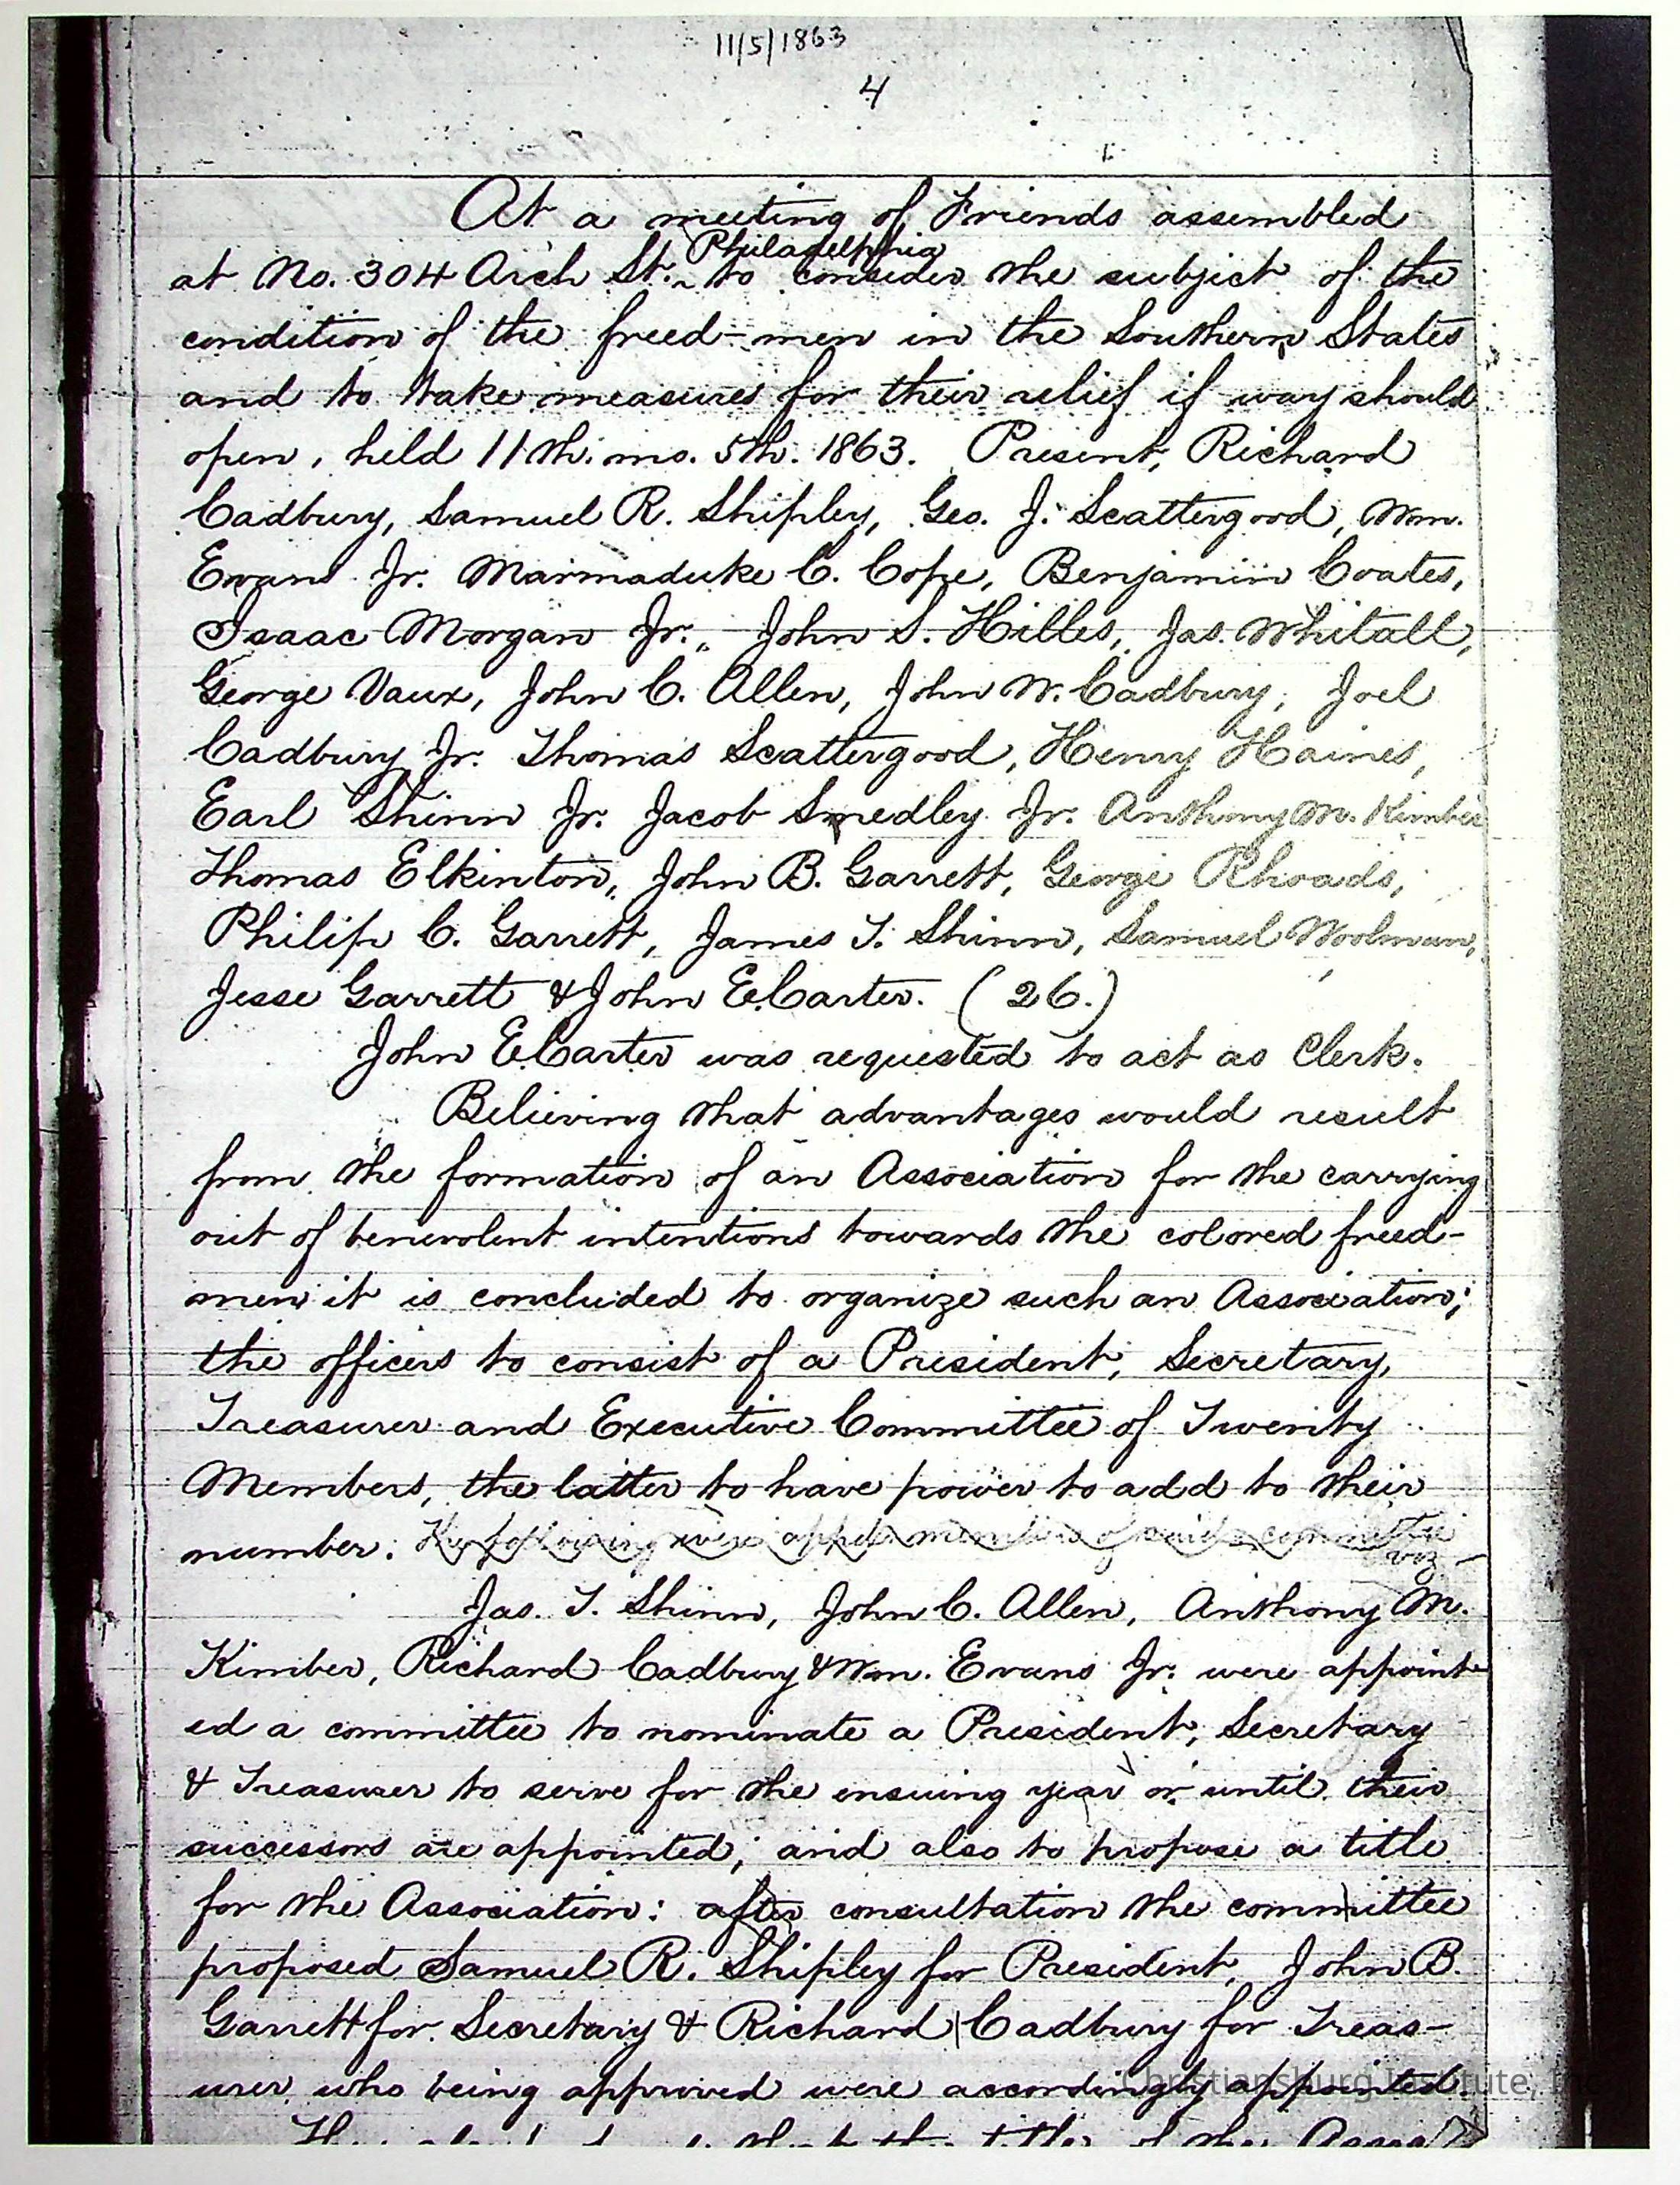 11/5/1863
4
At a meeting of Friends assembled
Philadelphia
at No. 304 Arch St. to consider the subject of the
condition of the freed-men in the Southern States
and to take measures for their relief if way should
open, held 11th. mo. 5th. 1863. Present, Richard
Cadbury, Samuel R. Shipley, Geo. J. Scattergood, Wm.
Evans Jr. Marmaduke C. Cope, Benjamin Coates,
Isaac Morgan Jr., John S. Hilles, Jas. Whitall,
George Vaux, John C. Allen, John W. Cadbury, Joel
Cadbury Jr. Thomas Scattergood, Henry Haines,
Earl Shinn Jr. Jacob Smedley Jr. Anthony M. Kimber
Thomas Elkinton, John B. Garrett, George Rhoads,
Philip C. Garrett, James T. Shinn, Samuel Woolman,
Jesse Garrett & John E. Carter. (26.)
John E. Carter was requested to act as Clerk.
Believing that advantages would result
from the formation of an Association for the carrying
out of benevolent intentions towards the colored freed-
men it is concluded to organize such an Association;
the officers to consist of a President, Secretary,
Treasurer and Executive Committee of Twenty
Members, the latter to have power to add to their
number. The following were app'd members of said committee
viz -
Jas. T. Shinn, John C. Allen, Anthony M.
Kimber, Richard Cadbury & Wm. Evans Jr. were appoint-
ed a committee to nominate a President, Secretary
& Treasurer to serve for the ensuing year or until their
successors are appointed; and also to propose a title
for the Association: after consultation the committee
proposed Samuel R. Shipley for President, John B.
Garrett for Secretary & Richard Cadbury for Treas-
urer who being approved were accordingly appointed.
Christiansburg Institute, Inc